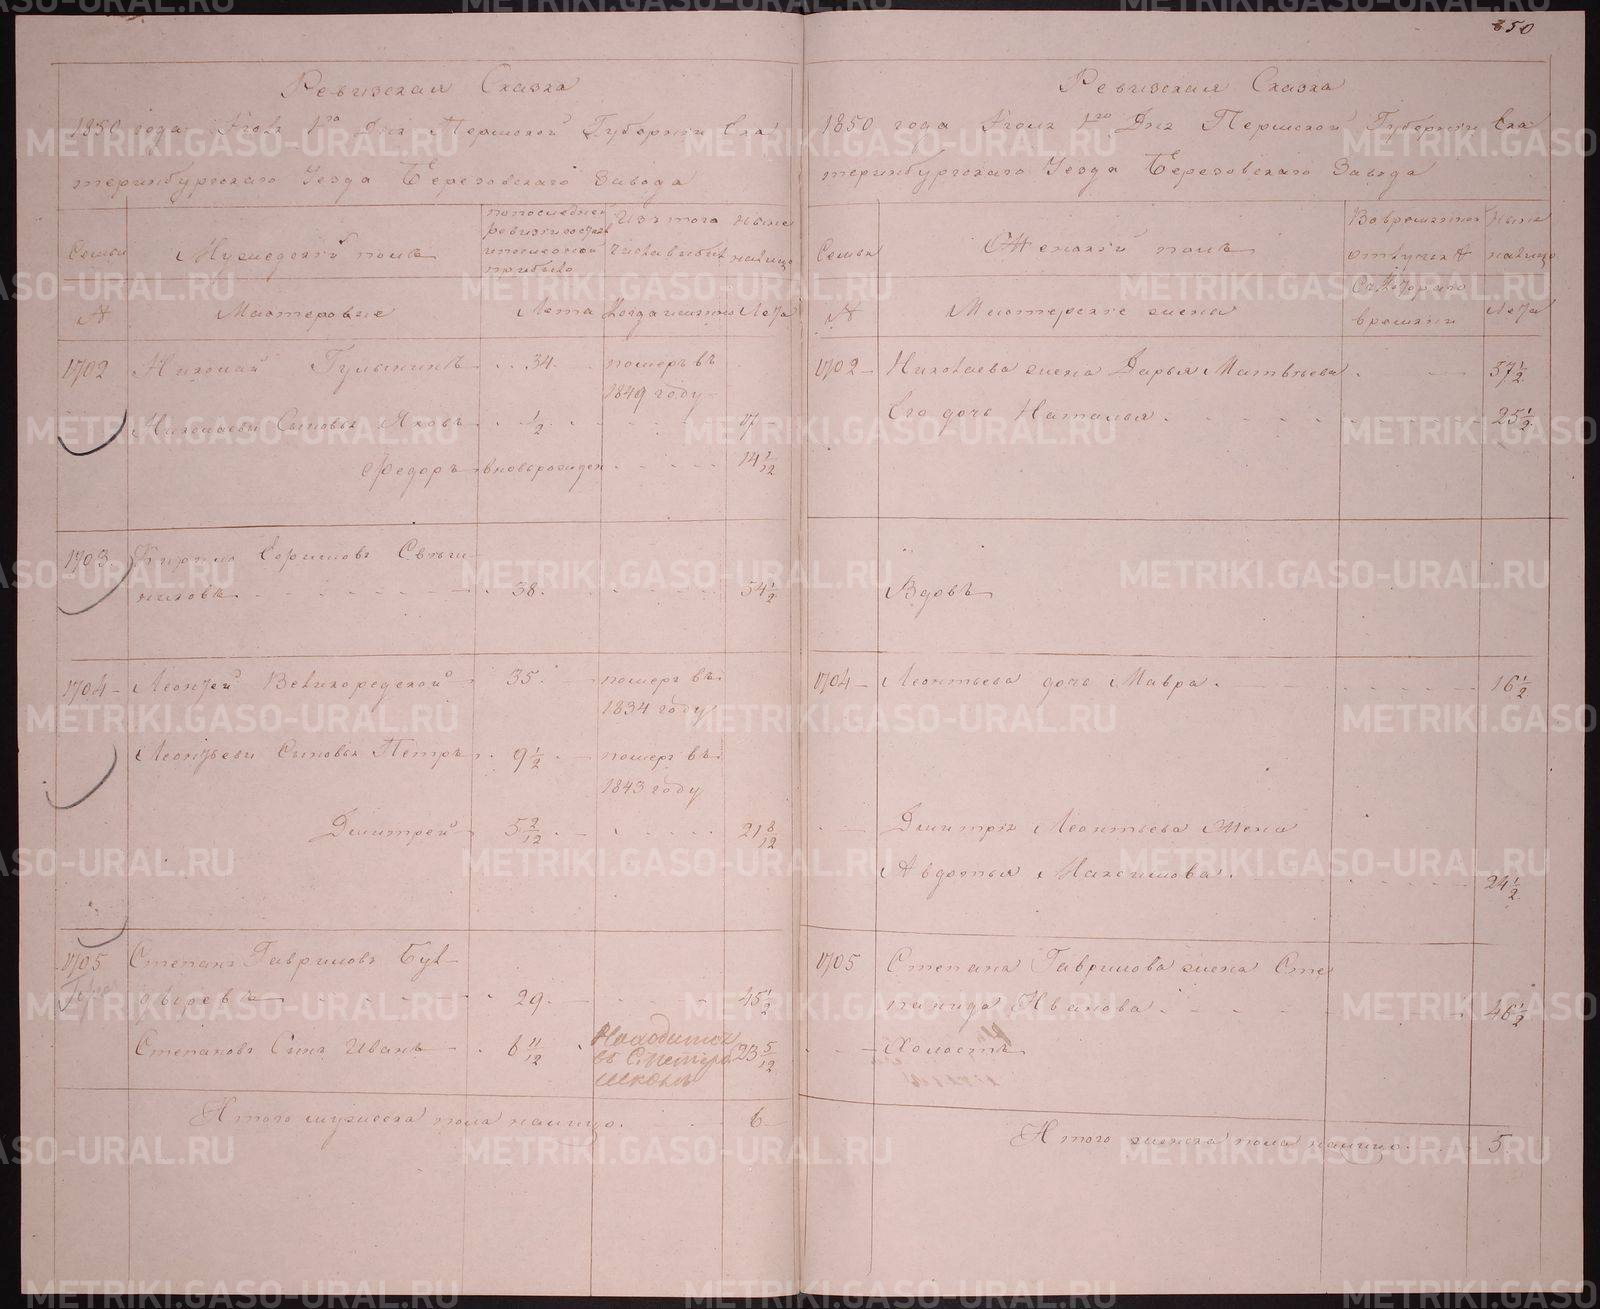 850
Ревизская Сказка
1850 года Июля 1го Дня Пермской Губернии Ека
теринбургского Уезда Березовского Завода
Семьи
№
Мужеский полъ
Мастеровые
по последней
ревизии состоял
и после оной
прибыло
Лета
Изъ того
числа выбыл
Когда именно
Ныне
налицо
Лета
1702 Николай Гулынинъ 34 померъ въ
1849 году
Николаевы Сыновья Яковъ 1/2 17
Федоръ вноворожден 14 1/12
1703 Кирило Ефимовъ Свѣчни
никовъ 38. 54 1/2
1704 Леонтей Великоредской 35. померъ въ
1834 году
Леонтьевы Сыновья Петръ 9 1/2 померъ въ
1843 году
Дмитрей 5 2/12 21 8/12
1705 Степанъ Гавриловъ
29. 45 1/2
Степановъ Сынъ Иванъ 6 11/12 Находится
въ С.Петерб
школѣ 23 5/12
Итого мужеска пола налицо. 6
Ревизская Сказка
1850 года Июля 1го Дня Пермской Губернии Ека
теринбургского Уезда Березовского Завода
Семьи
№
Женский полъ
Мастерские жены
Во временной
отлучке
Съ которого
времяни
Ныне
налицо
Лета
1702 Николаева жена Дарья Матвѣева 57 1/2
Его дочь Наталья 25 1/2
Вдовъ
1704 Леонтьева дочь Мавра. 16 1/2
Дмитрия Леонтьева Жена
Авдотья Максимова. 24 1/2
1705 Степана Гаврилова жена Сте
панида Иванова 46 1/2
Холостъ
Итого женска пола налицо. 5
METRIKI.GASO-URAL.RU